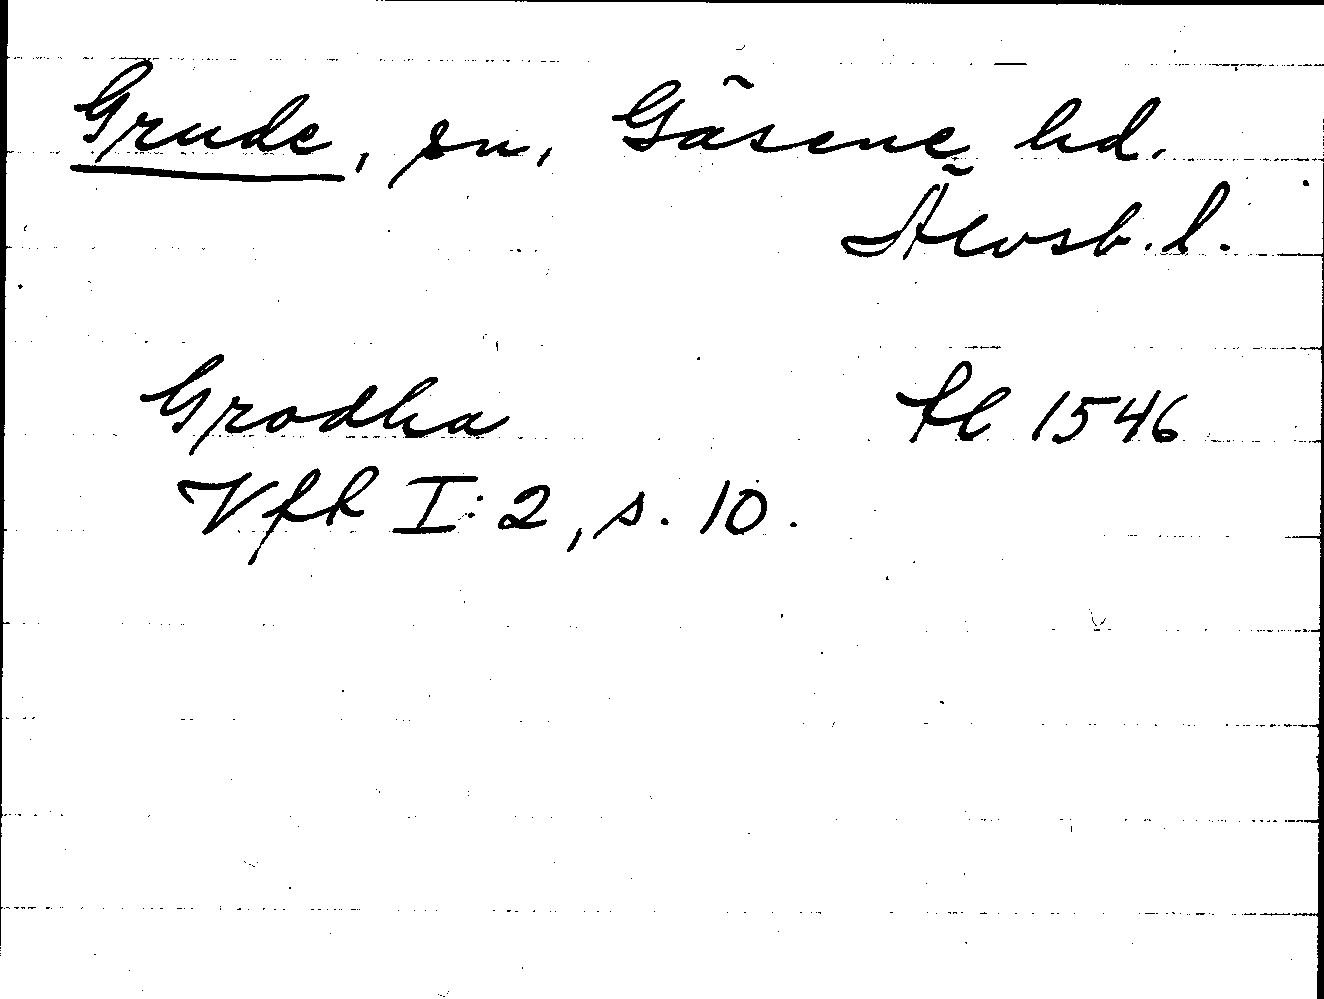 Grude, sn, Gäsene hd.
Älvsb. l.
Grodha fl 1546
Vfk I: 2, s. 10.